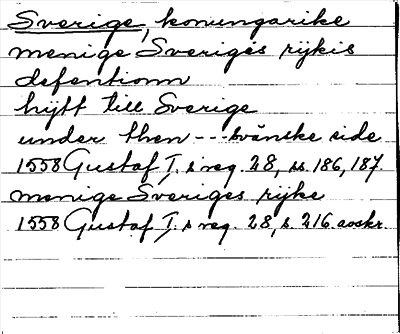 Sverige, konungarike
menige Sveriges rijkis
defentionn
hijtt till Sverige
under then -- svänske side
1558 Gustaf I, s reg. 28, ss. 186, 187.
menige Sveriges rijke
1558 Gustaf I, s reg. 28, s. 216. avskr.